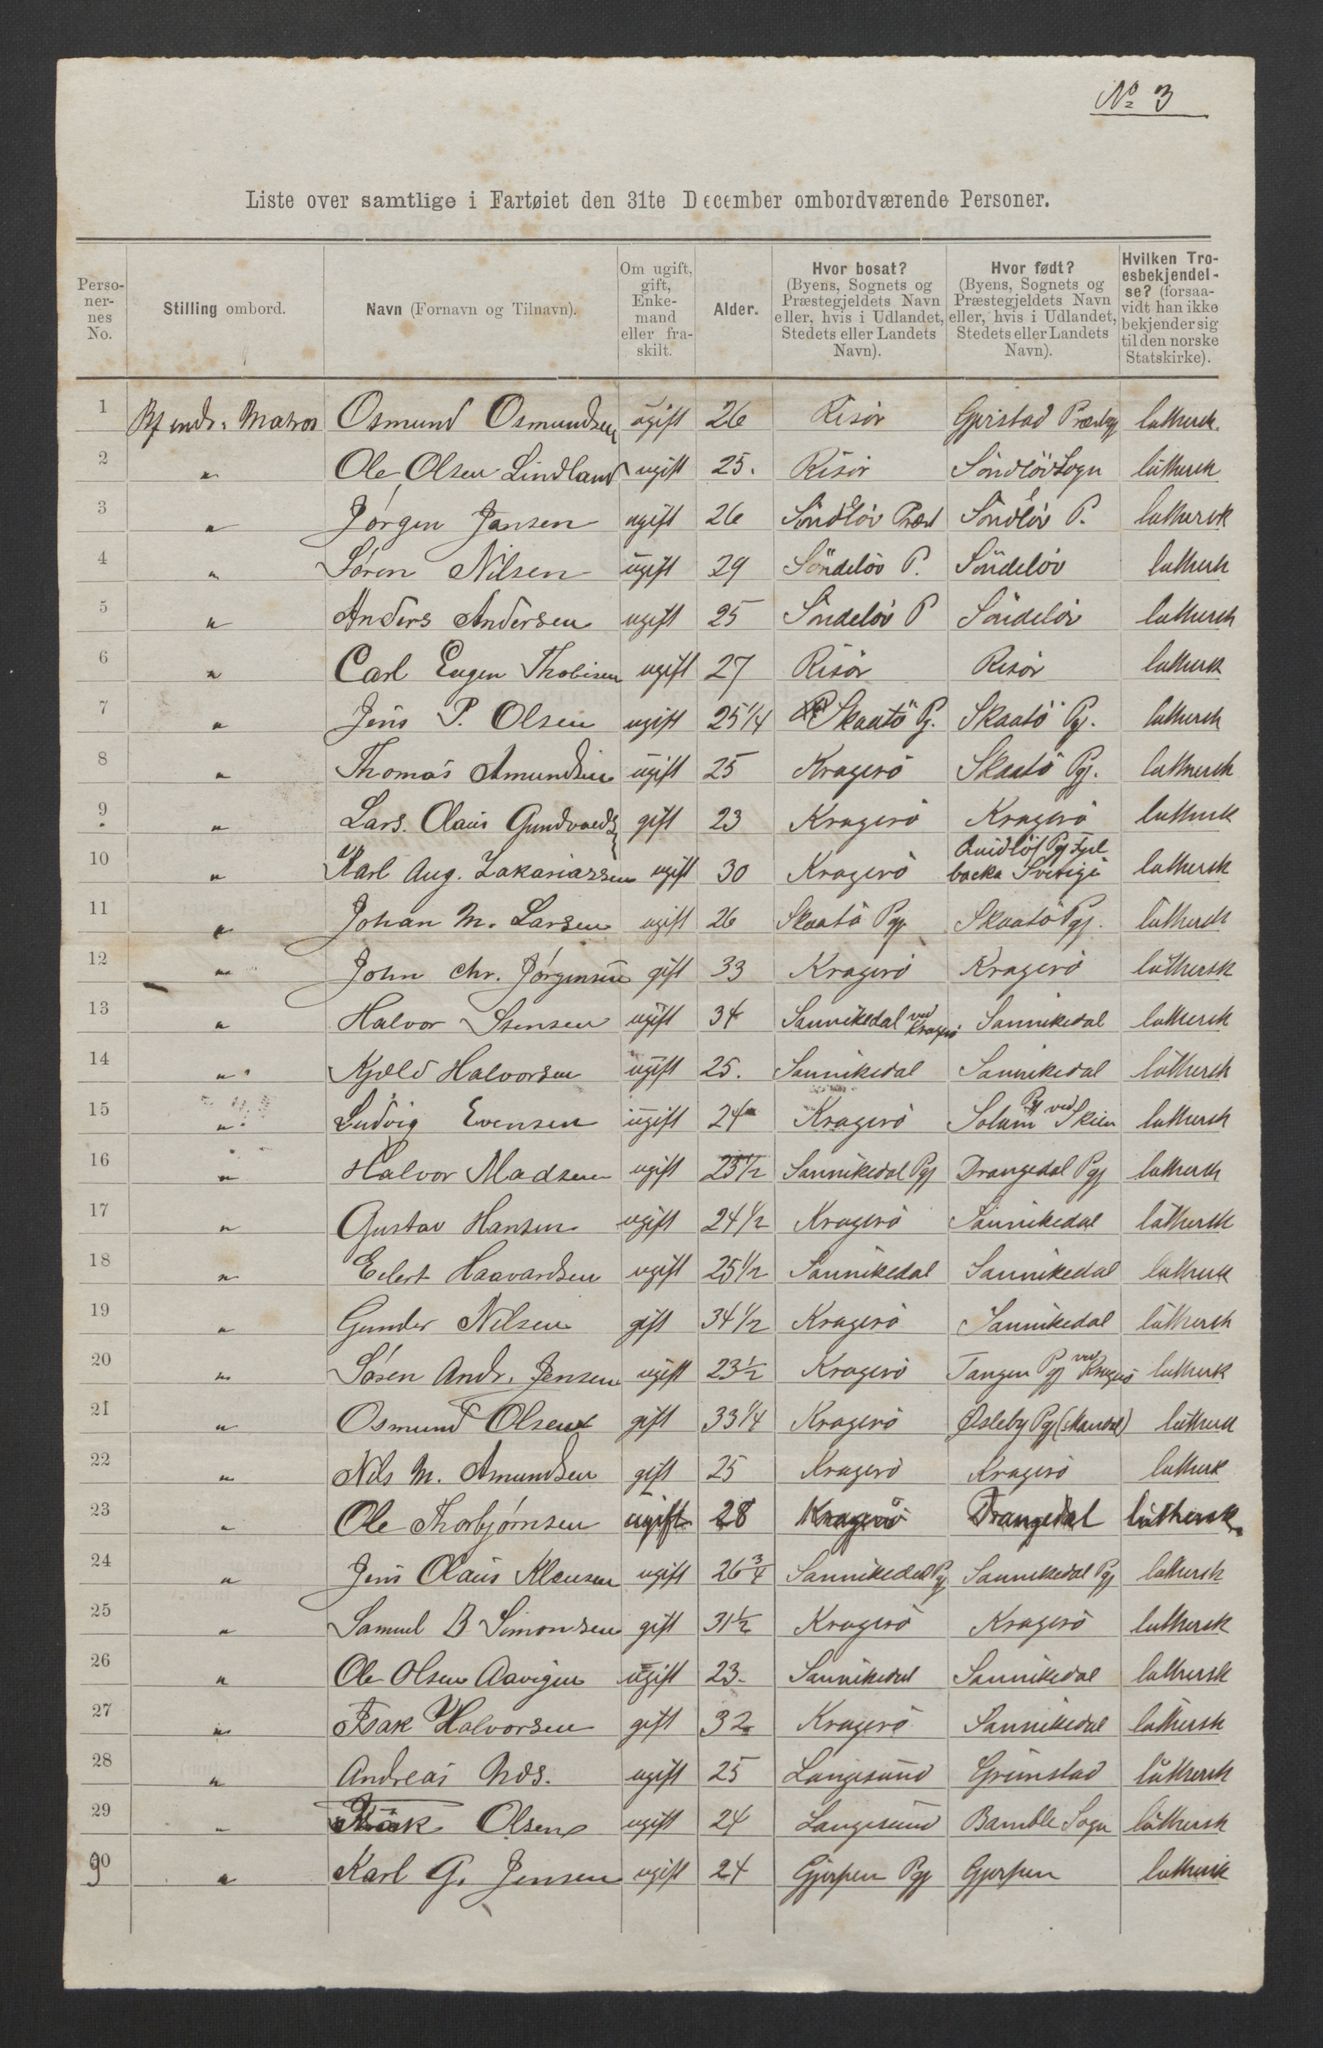 No 3
Liste over samtlige i Fartøiet den 31te December ombordværende Personer.
Perso-
ner-
nes
No.
Stilling ombord.
Navn (Fornavn og Tilnavn).
Om ugift,
gift,
Enke-
mand
eller fra-
skilt.
Alder.
Hvor bosat?
(Byens, Sognets og
Præstegjeldets Navn
eller, hvis i Udlandet,
Stedets eller Landets
Navn).
Hvor født?
(Byens, Sognets og
Præstegjeldets Navn
eller, hvis i Udlandet,
Stedets eller Landets
Navn).
Hvilken Tro-
esbekjendel-
se? (forsaa-
vidt han ikke
bekjender sig
til den norske
Statskirke).
1 Matros Osmund Osmundsen ugift 26 Risör Gjeistad luthersk.
2 " Ole Olsen Lindland ugift 25. Risör Söndlöv Sogn luthersk
3 " Jørgen Jansen ugift 26 Söndlöv Præst Söndlöv P. luthersk
4 " Søren Nilsen ugift 29 Söndelöv P. Söndelöv luthersk
5 " Anders Andersen ugift 25 Söndelöv P Söndelöv luthersk
6 " Carl Eugen Thobisen ugift 27 Risör Risör luthersk
7 " Jens P. Olsen ugift 25 1/4 Skaatö Pj. Skaatö Pgj. luthersk
8 " Thomas Amundsen ugift 25 Kragerö Skaatö Pgj. luthersk
9 " Lars. Olaus Gundvalds gift 23 Kragerö Kragerö luthersk
10 " Karl Aug. Zakariassen ugift 30 Kragerö Pgj Fjel
backa Sverige luthersk
11 " Johan M. Larsen ugift 26 Skaatö Pgj Skaatö Pgj. luthersk
12 " John Chr. Jørgensen gift 33 Kragerö Kragerö luthersk
13 " Halvor Stensen ugift 34 Sannikedal ved Kragerö Sannikedal luthersk
14 " Kjæld Halvorsen ugift 25. Sannikedal Sannikedal luthersk
15 " Ludvig Evensen ugift 24 Kragerö Solum Pgj ved Skien luthersk
16 " Halvor Madsen ugift 25 1/2 Sannikedal Pgj Drangedal Pgj luthersk
17 " Gustav Hansen ugift 24 1/2 Kragerö Sannikedal luthersk
18 " Eilert Haavardsen ugift 25 1/2 Sannikedal Sannikedal luthersk
19 " Gunder Nilsen gift 34 1/2 Kragerö Sannikedal luthersk
20 " Søren Andr. Jensen ugift 23 1/2 Kragerö Tangen Pgj ved Kragerö luthersk
21 " Osmund Olsen gift 33 1/4 Kragerö Øsleby Pgj luthersk
22 " Nils M. Amundsen gift 25 Kragerö Kragerö luthersk
23 " Ole Thorbjørnsen ugift 28 Kragerö Drangedal luthersk.
24 " Jens Olaus Klausen ugift 26 3/4 Sannikedal Pgj Sannikedal Pgj luthersk
25 " Samuel B Simonsen gift 31 1/2 Kragerö Kragerö luthersk
26 " Ole Olsen Aavigen ugift 23. Sannikedal Sannikedal luthersk
27 " Isak Halvorsen gift 32 Kragerö Sannikedal luthersk
28 " Andreas Nds. ugift 25 Langesund Grimstad luthersk
29 " Isak Olsen ugift 24 Langesund Bamble Sogn luthersk
30 " Karl G. Jensen ugift 24 Gjerpen Pgj Gjerpen luthersk